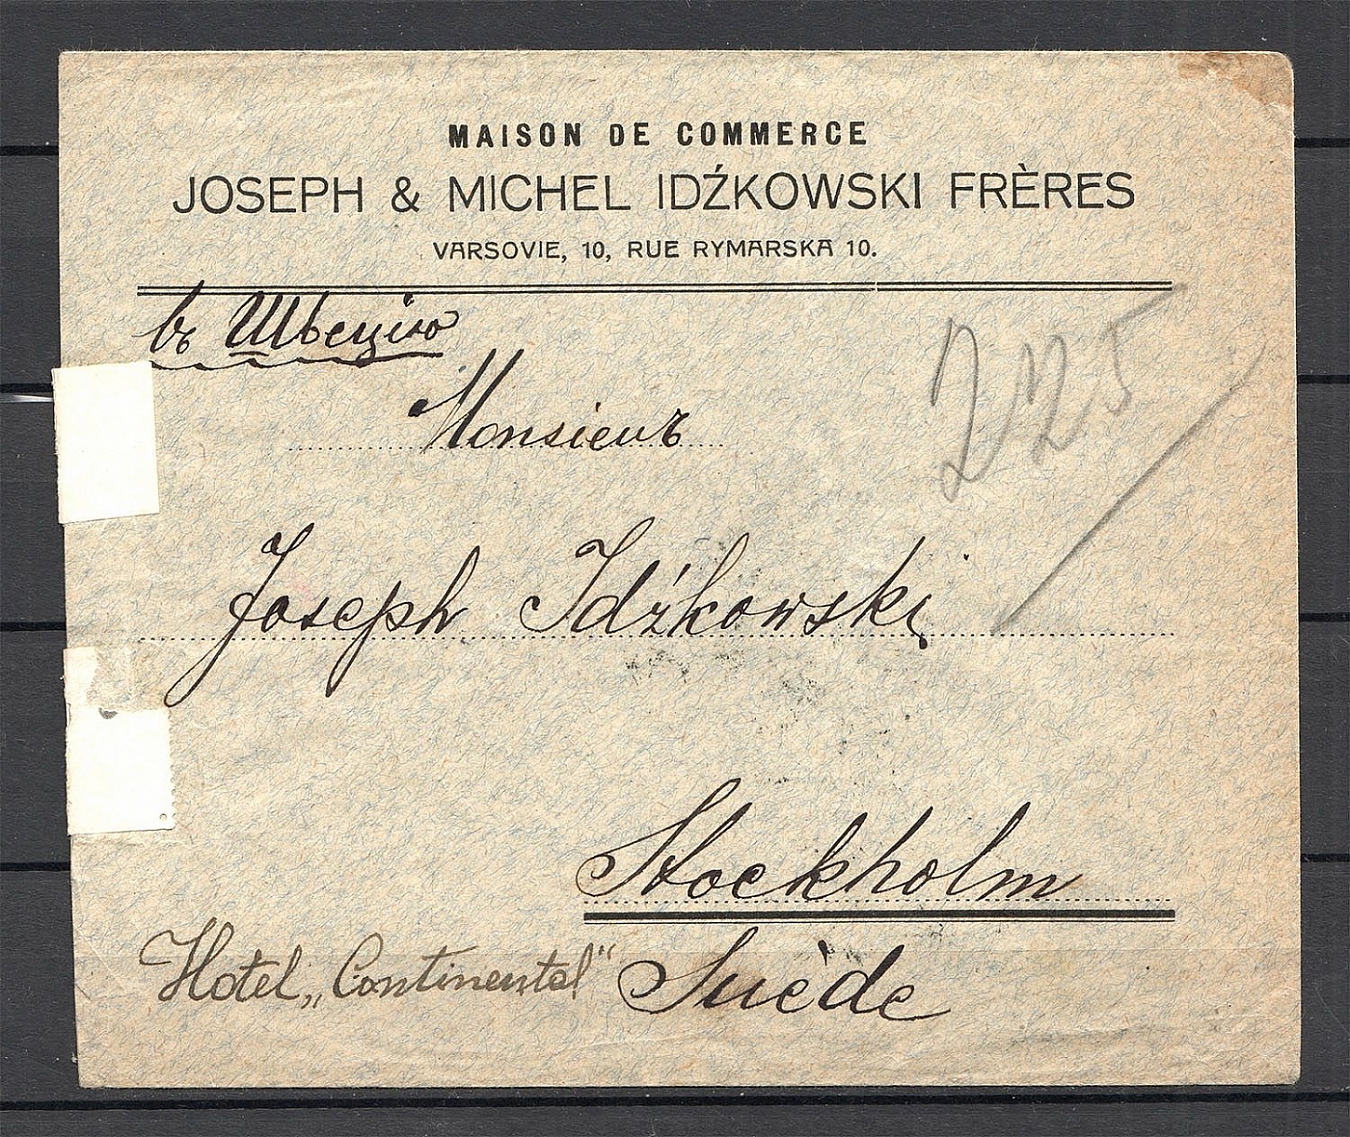 MAISON DE COMMERCE
JOSEPH & MICHEL IDŹKOWSKI FRÈRES
VARSOVIE, 10, RUE RYMARSKA 10.
въ Швецію
225
Monsieur
Joseph Idźkowski
Stockholm
Hotel „Continental“ Suède